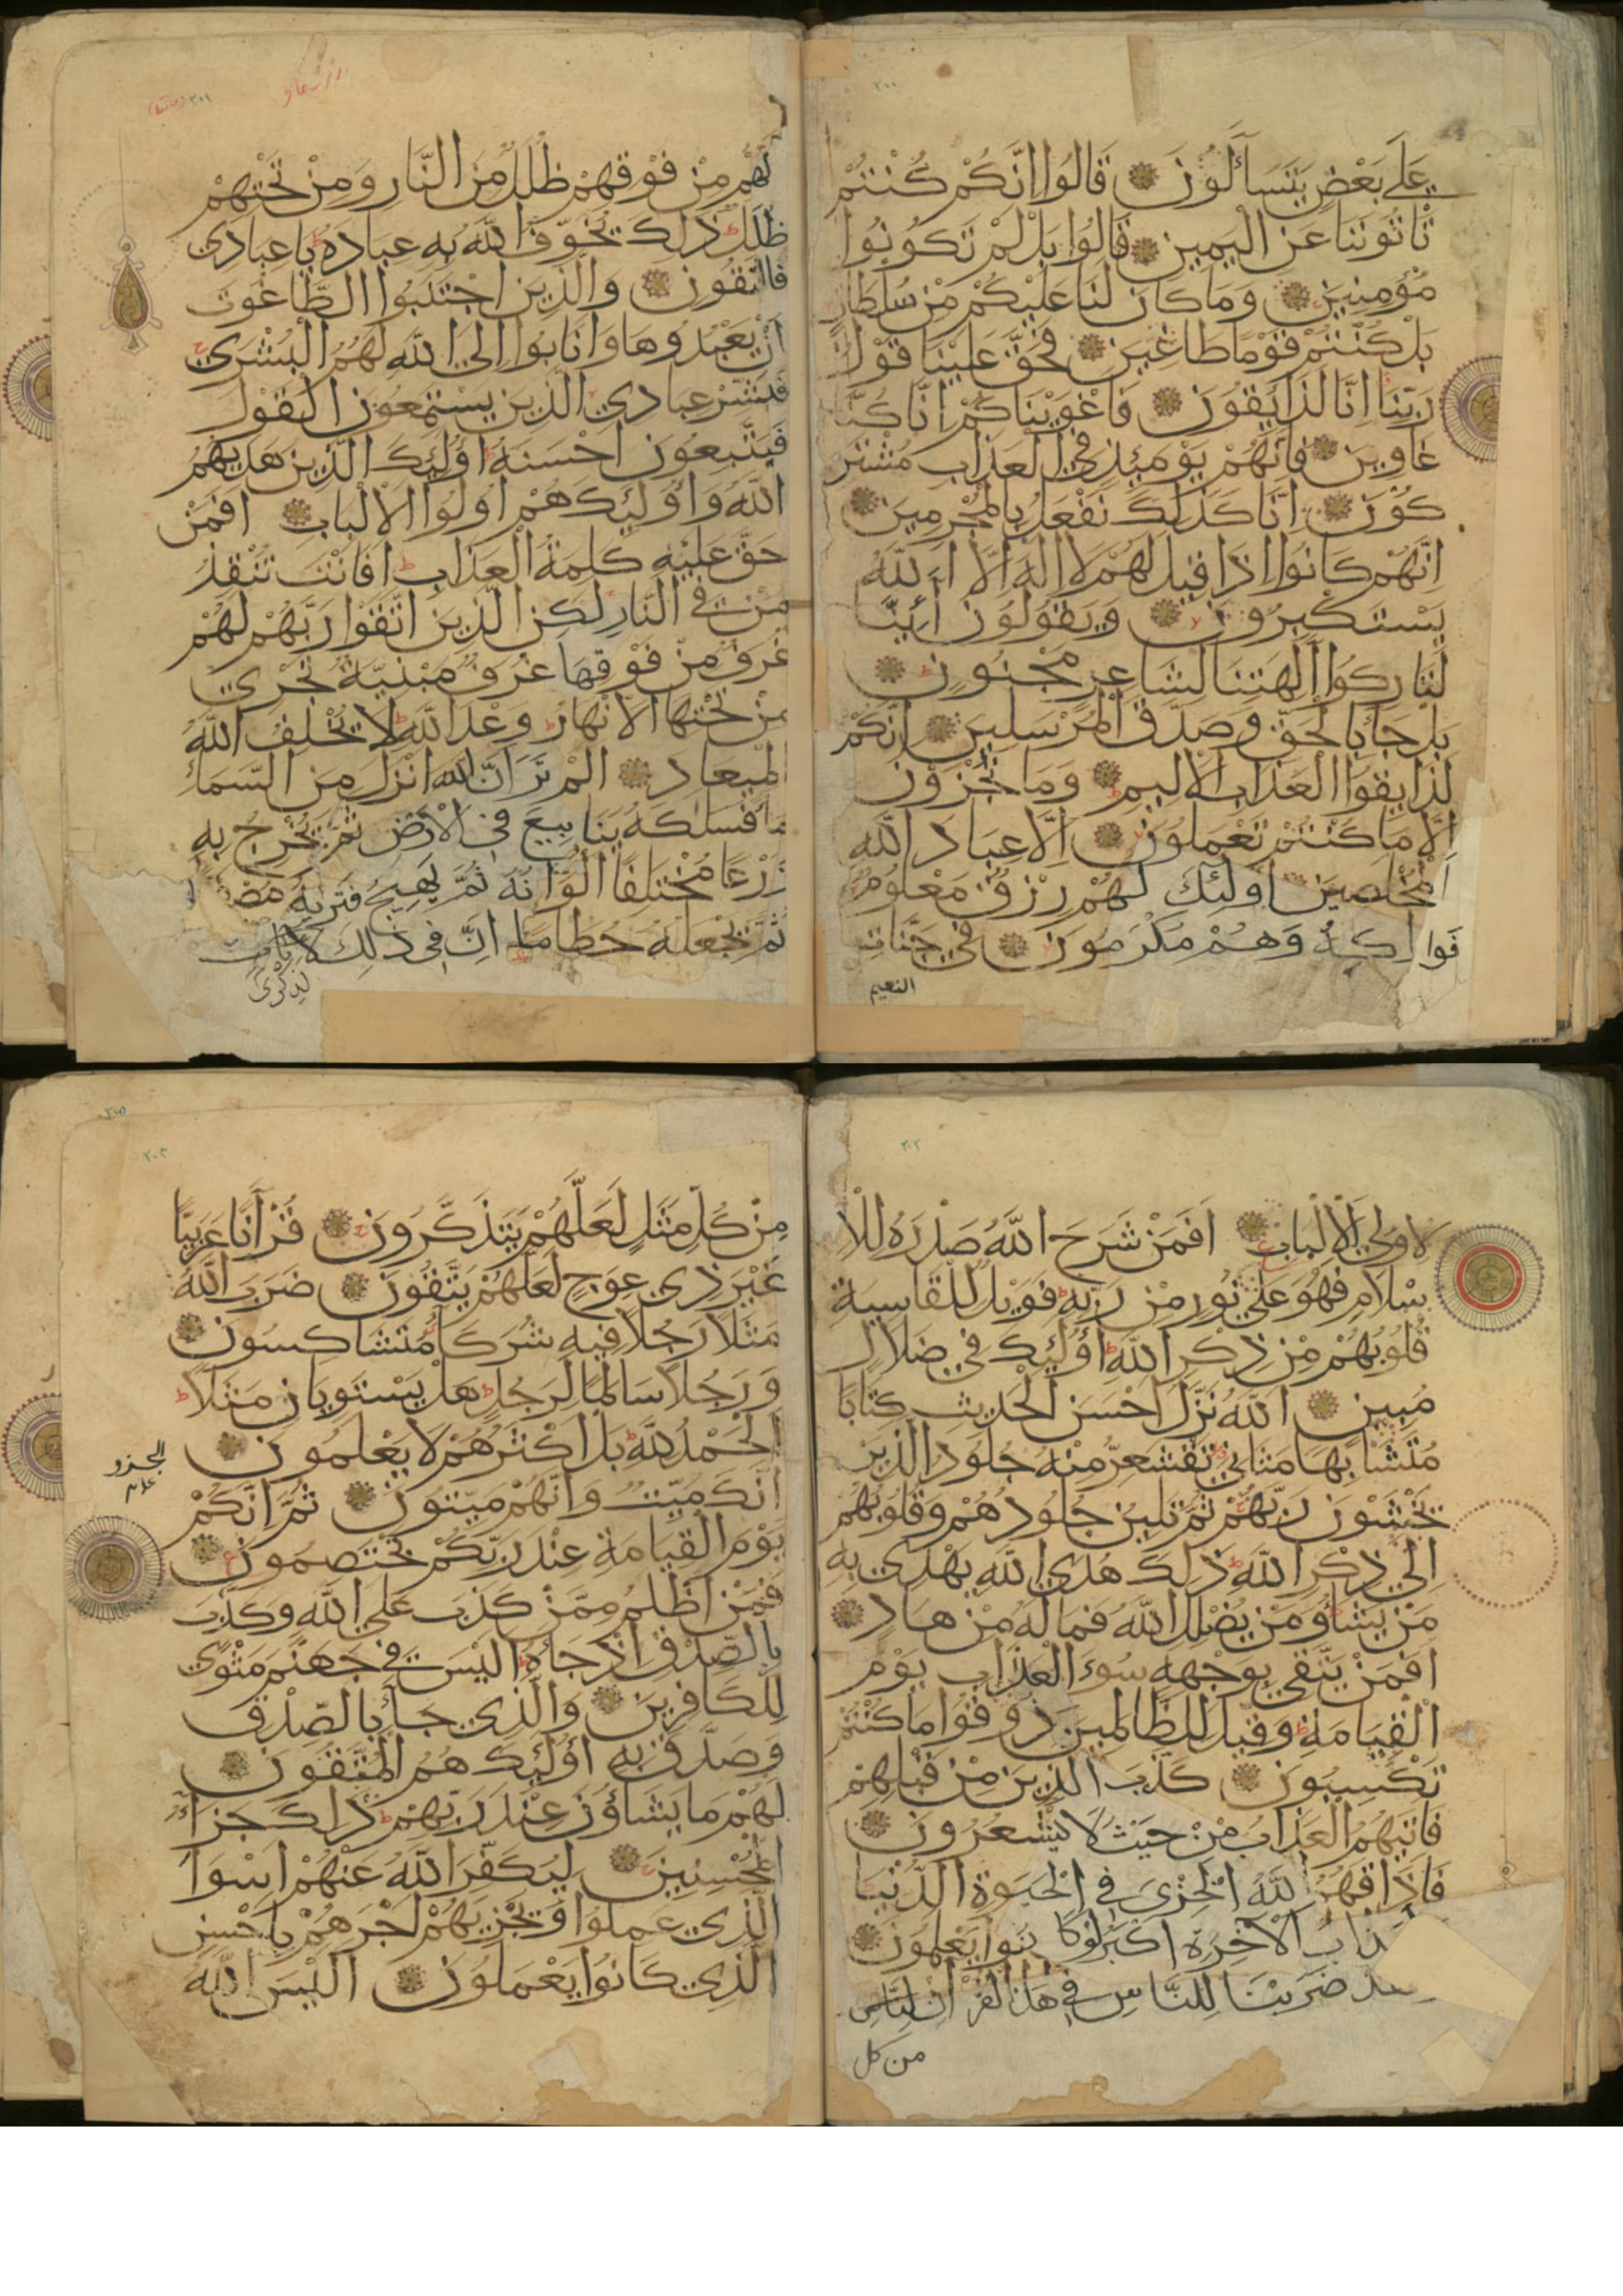 ٢٠٠
عَلَى بَعْضٍ يَتَسَآءَلُونَ قَالُوا اِنَّكُمْ كُنْتُمْ
تَأْتُونَنَا عَنِ الْيَمِينِ قَالُوا بَلْ لَمْ تَكُونُوا
مُؤْمِنِينَ وَمَا كَانَ لَنَا عَلَيْكُمْ مِنْ سُلْطَانٍ
بَلْ كُنْتُمْ قَوْمًا طَاغِينَ فَحَقَّ عَلَيْنَا قَوْلُ
رَبِّنَا اِنَّا لَذَايِقُونَ فَاَغْوَيْنَاكُمْ اِنَّا كُنَّا
غَاوِينَ فَاِنَّهُمْ يَوْمَئِذٍ فِي الْعَذَابِ مُشْتَرِ
كُونَ اِنَّا كَذَلِكَ نَفْعَلُ بِالْمُجْرِمِينَ
اِنَّهُمْ كَانُوا اِذَا قِيلَ لَهُمْ لَا اِلَهَ اِلَّا اللَّهُ
يَسْتَكْبِرُونَ وَيَقُولُونَ اَئِنَّا
لَتَارِكُوا اَلِهَتِنَا لِشَاعِرٍ مَجْنُونٍ
بَلْ جَاءَ بِالْحَقِّ وَصَدَّقَ الْمُرْسَلِينَ اِنَّكُمْ
لَذَايِقُوا الْعَذَابِ الْاَلِيمِ وَمَا تُجْزَوْنَ
اِلَّا مَا كُنْتُمْ تَعْمَلُونَ اِلَّا عِبَادَ اللَّهِ
الْمُخْلَصِينَ اُولَئِكَ لَهُمْ رِزْقٌ مَعْلُومٌ
فَوَاكِهُ وَهُمْ مُكْرَمُونَ فِي جَنَّاتِ
النعيم
٢٠١
لَهُمْ مِنْ فَوْقِهِمْ ظُلَلٌ مِنَ النَّارِ وَمِنْ تَحْتِهِمْ
ظُلَلٌ ذَلِكَ يُخَوِّفُ اللَّهُ بِهِ عِبَادَهُ يَا عِبَادِي
فَاتَّقُونِ وَالَّذِينَ اجْتَنَبُوا الطَّاغُوتَ
اَنْ يَعْبُدُوهَا وَاَنَابُوا اِلَى اللَّهِ لَهُمُ الْبُشْرَى
فَبَشِّرْ عِبَادِي الَّذِينَ يَسْتَمِعُونَ الْقَوْلَ
فَيَتَّبِعُونَ اَحْسَنَهُ اُولَئِكَ الَّذِينَ هَدَيهُمُ
اللَّهُ وَاُولَئِكَ هُمْ اُولُوا الْاَلْبَابِ اَفَمَنْ
حَقَّ عَلَيْهِ كَلِمَةُ الْعَذَابِ اَفَاَنْتَ تُنْقِذُ
مَنْ فِي النَّارِ لَكِنِ الَّذِينَ اتَّقَوْا رَبَّهُمْ لَهُمْ
غُرَفٌ مِنْ فَوْقِهَا غُرَفٌ مَبْنِيَّةٌ تَجْرِي
مِنْ تَحْتِهَا الْاَنْهَارُ وَعْدَ اللَّهِ لَا يُخْلِفُ اللَّهُ
الْمِيعَادَ اَلَمْ تَرَ اَنَّ اللَّهَ اَنْزَلَ مِنَ السَّمَاءِ
مَاءً فَسَلَكَهُ يَنَابِيعَ فِي الْاَرْضِ ثُمَّ يُخْرِجُ بِهِ
زَرْعًا مُخْتَلِفًا اَلْوَانُهُ ثُمَّ يَهِيجُ فَتَرَيهُ
ثُمَّ يَجْعَلُهُ حُطَامًا اِنَّ فِي ذَلِكَ
لَذِكْرَى
٢٠٢
لِاُولِي الْاَلْبَابِ اَفَمَنْ شَرَحَ اللَّهُ صَدْرَهُ لِلْاِ
سْلَامِ فَهُوَ عَلَى نُورٍ مِنْ رَبِّهِ فَوَيْلٌ لِلْقَاسِيَةِ
قُلُوبُهُمْ مِنْ ذِكْرِ اللَّهِ اُولَئِكَ فِي ضَلَالٍ
مُبِينٍ اَللَّهُ نَزَّلَ اَحْسَنَ الْحَدِيثِ كِتَابًا
مُتَشَابِهًا مَثَانِيَ تَقْشَعِرُّ مِنْهُ جُلُودُ الَّذِينَ
يَخْشَوْنَ رَبَّهُمْ ثُمَّ تَلِينُ جُلُودُهُمْ وَقُلُوبُهُمْ
اِلَى ذِكْرِ اللَّهِ ذَلِكَ هُدَى اللَّهِ يَهْدِي بِهِ
مَنْ يَشَاءُ وَمَنْ يُضْلِلِ اللَّهُ فَمَا لَهُ مِنْ هَادٍ
اَفَمَنْ يَتَّقِي بِوَجْهِهِ سُوءَ الْعَذَابِ يَوْمَ
الْقِيَامَةِ وَقِيلَ لِلظَّالِمِينَ ذُوقُوا مَا كُنْتُمْ
تَكْسِبُونَ كَذَّبَ الَّذِينَ مِنْ قَبْلِهِمْ
فَاَتَيهُمُ الْعَذَابُ مِنْ حَيْثُ لَا يَشْعُرُونَ
فَاَذَاقَهُمُ اللَّهُ الْخِزْيَ فِي الْحَيَوةِ الدُّنْيَا
الْآخِرَةِ اَكْبَرُ لَوْ كَانُوا يَعْلَمُونَ
ضَرَبْنَا لِلنَّاسِ فِي هَذَا الْقُرْاَنِ
من كل
٢٠٣
مِنْ كُلِّ مَثَلٍ لَعَلَّهُمْ يَتَذَكَّرُونَ قُرْآنًا عَرَبِيًّا
غَيْرَ ذِي عِوَجٍ لَعَلَّهُمْ يَتَّقُونَ ضَرَبَ اللَّهُ
مَثَلًا رَجُلًا فِيهِ شُرَكَاءُ مُتَشَاكِسُونَ
وَرَجُلًا سَالِمًا لِرَجُلٍ هَلْ يَسْتَوِيَانِ مَثَلًا
الْحَمْدُ لِلَّهِ بَلْ اَكْثَرُهُمْ لَا يَعْلَمُونَ
اِنَّكَ مَيِّتٌ وَاِنَّهُمْ مَيِّتُونَ ثُمَّ اِنَّكُمْ
يَوْمَ الْقِيَامَةِ عِنْدَ رَبِّكُمْ تَخْتَصِمُونَ
فَمَنْ اَظْلَمُ مِمَّنْ كَذَبَ عَلَى اللَّهِ وَكَذَّبَ
بِالصِّدْقِ اِذْ جَاءَهُ اَلَيْسَ فِي جَهَنَّمَ مَثْوًى
لِلْكَافِرِينَ وَالَّذِي جَاءَ بِالصِّدْقِ
وَصَدَّقَ بِهِ اُولَئِكَ هُمُ الْمُتَّقُونَ
لَهُمْ مَا يَشَاؤُنَ عِنْدَ رَبِّهِمْ ذَلِكَ جَزَاءُ
الْمُحْسِنِينَ لِيُكَفِّرَ اللَّهُ عَنْهُمْ اَسْوَاَ
الَّذِي عَمِلُوا وَيَجْزِيَهُمْ اَجْرَهُمْ بِاَحْسَنِ
الَّذِي كَانُوا يَعْمَلُونَ اَلَيْسَ اللَّهُ
الجزو